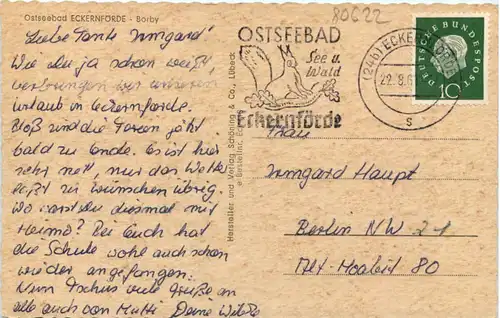 Ostseebad ECKERNFÖRDE - Borby
80622
Liebe Tante Irmgard!
Wie du ja schon weißt
verbringen wir unseren
Urlaub in Eckernförde.
Bloß sind die Ferien jetzt
bald zu Ende. Es ist hier
sehr nett, nur das Wetter
läßt zu wünschen übrig.
Wo warst du diesmal mit
Heimo? Bei Euch hat
die Schule wohl auch schon
wieder angefangen.
Nun Tschüs viele Grüße an
alle auch von Mutti Deine
Hersteller und Verlag Schöning & Co., Lübeck
OSTSEEBAD
See u.
Wald
Eckernförde
(24b) ECKERNFÖRDE
22.8.6
s
DEUTSCHE BUNDESPOST
10
Frau
Irmgard Haupt
Berlin NW 21
Alt-Moabit 80